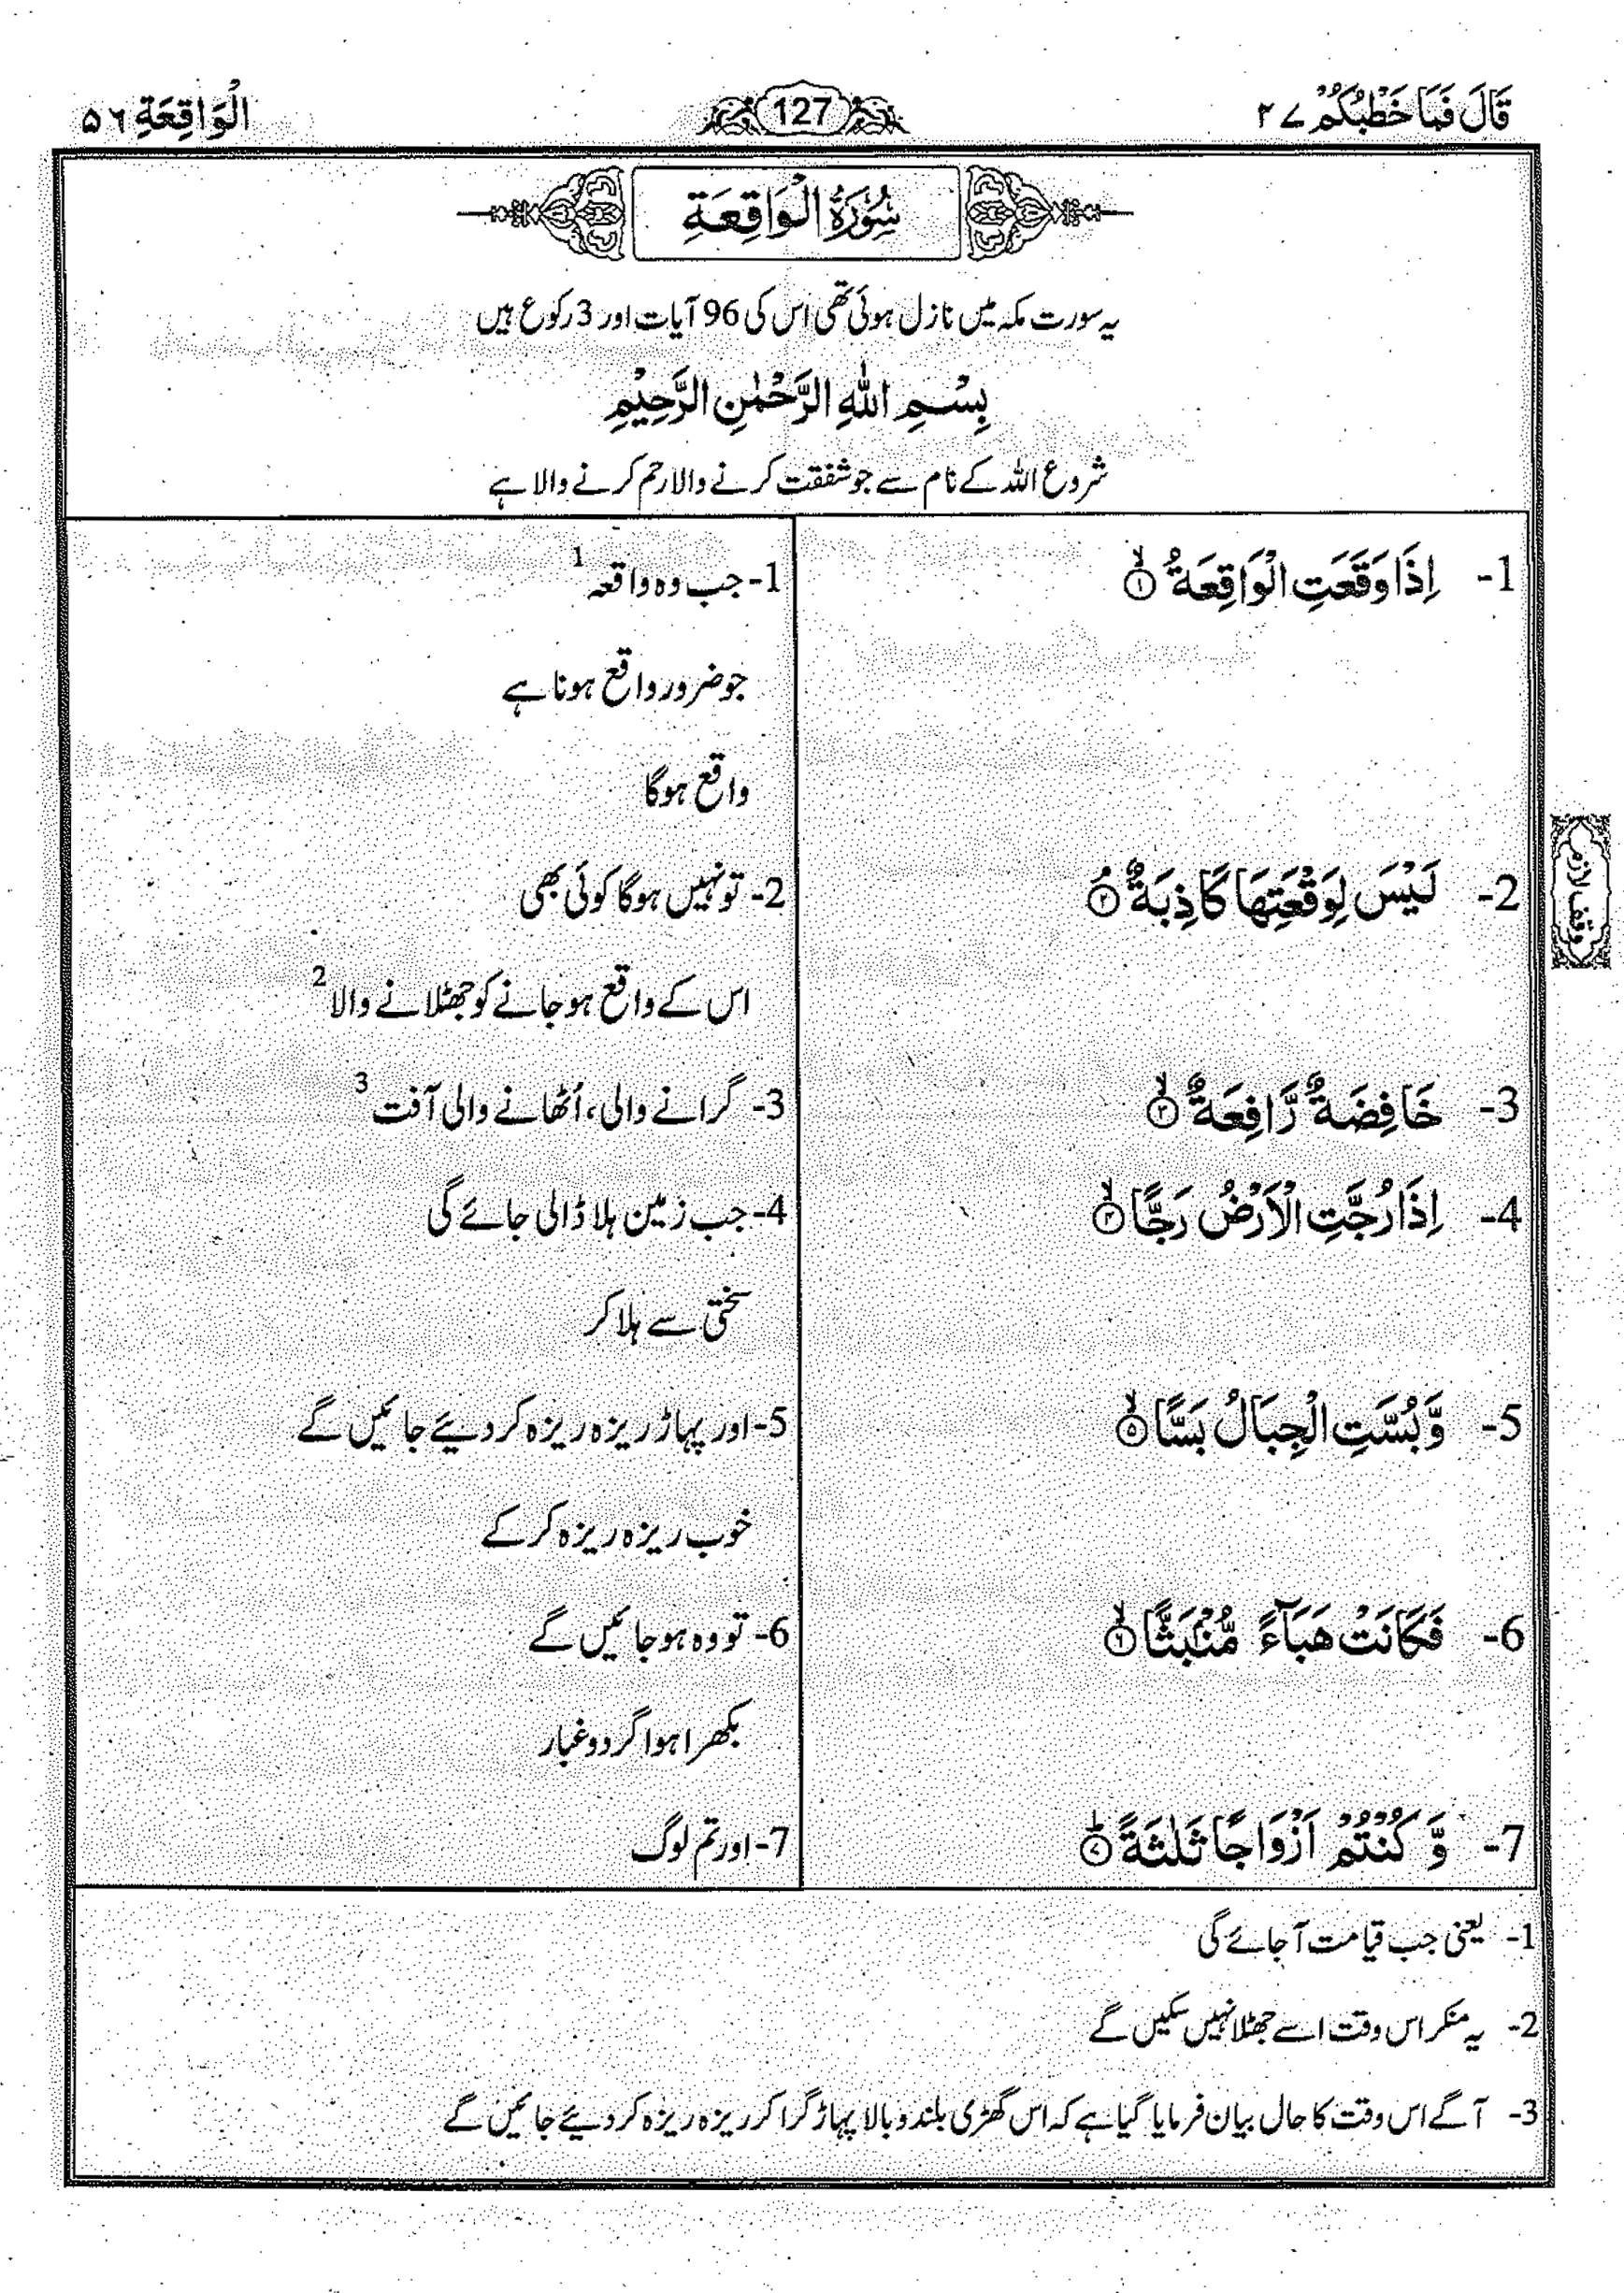 قَالَ فَمَا خَطْبُكُمْ ۲۷
127
الْوَاقِعَةِ ۵۶
سُوْرَةُ الْوَاقِعَةِ
یہ سورت مکہ میں نازل ہوئی تھی اس کی 96 آیات اور 3 رکوع ہیں
بِسْمِ اللّٰهِ الرَّحْمٰنِ الرَّحِیْمِ
شروع اللہ کے نام سے جو شفقت کرنے والا رحم کرنے والا ہے
1- اِذَا وَقَعَتِ الْوَاقِعَةُ ۙ﴿۱﴾
1- جب وہ واقعہ 1
جو ضرور واقع ہونا ہے
واقع ہوگا
2- لَیْسَ لِوَقْعَتِهَا كَاذِبَةٌ ۘ﴿۲﴾
وقف لازم
2- تو نہیں ہوگا کوئی بھی
اس کے واقع ہو جانے کو جھٹلانے والا 2
3- خَافِضَةٌ رَّافِعَةٌ ۙ﴿۳﴾
3- گرانے والی، اُٹھانے والی آفت 3
4- اِذَا رُجَّتِ الْاَرْضُ رَجًّا ۙ﴿۴﴾
4- جب زمین ہلا ڈالی جائے گی
سختی سے ہلا کر
5- وَّ بُسَّتِ الْجِبَالُ بَسًّا ۙ﴿۵﴾
5- اور پہاڑ ریزہ ریزہ کر دیئے جائیں گے
خوب ریزہ ریزہ کر کے
6- فَكَانَتْ هَبَآءً مُّنْۢبَثًّا ۙ﴿۶﴾
6- تو وہ ہو جائیں گے
بکھرا ہوا گرد و غبار
7- وَّ كُنْتُمْ اَزْوَاجًا ثَلٰثَةً ؕ﴿۷﴾
7- اور تم لوگ
1- یعنی جب قیامت آ جائے گی
2- یہ منکر اس وقت اسے جھٹلا نہیں سکیں گے
3- آگے اس وقت کا حال بیان فرمایا گیا ہے کہ اس گھڑی بلند و بالا پہاڑ گرا کر ریزہ ریزہ کر دیئے جائیں گے